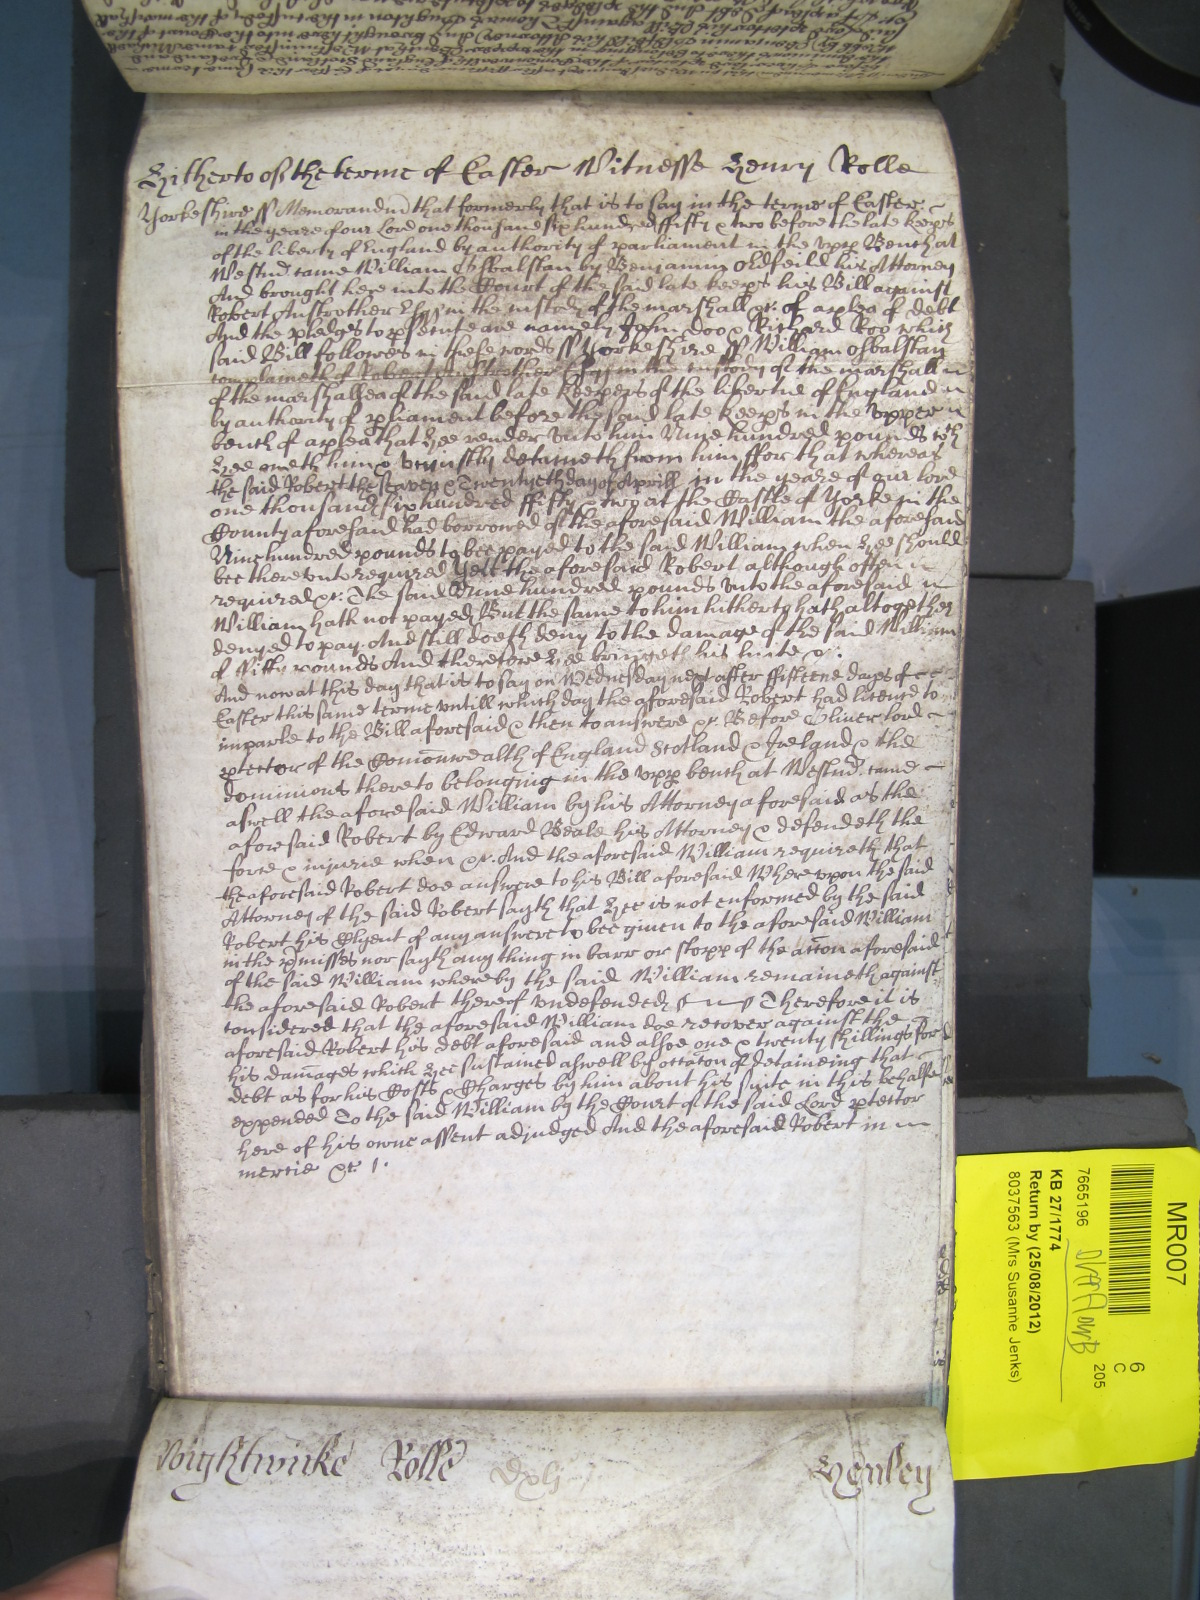 Hitherto of the terme of Easter Witnesse Henry Rolle
Yorkeshire ss Memorandum that formerly that is to say in the terme of Easter
in the yeare of our Lord one thousand six hundred fifty & two before the late keeps
of the liberty of England by authority of parliament in the upp Bench at
Westmr came William Osbalstan by Benjamin Oldfeild his Attorney
And brought here into the Court of the said late keeps his Bill against
Robert Anstrother Esqr in the custody of the marshall &c. of a plea of debt
And the pledges to psecute are namely John Doo & Richard Roo which
said Bill followes in these words ss Yorkeshire ss William Osbalstan
complaineth of Robert Anstrother Esqr in the custody of the marshall
of the marshallsea of the said late keepers of the libertie of England
by authority of pliament before the said late keeps in the upper
bench of a plea that hee render unto him Nine hundred pounds wch
hee oweth him & uniustly detaineth from him ffor that whereas
the said Robert the seaven & Twentyeth day of Aprill in the yeare of our lord
one thousand six hundred fifty & two at the Castle of Yorke in the
County aforesaid had borrowed of the aforesaid William the aforesaid
Nine hundred pounds to bee payed to the said William when hee should
bee thereunto required Yett the aforesaid Robert although often
required &c. The said Nine hundred pounds unto the aforesaid
William hath not payed But the same to him hitherto hath altogether
denyed to pay And still doeth deny to the damage of the said William
of fiftie pounds And therefore hee bringeth his suite &c.
And now at this day that is to say on Wednesday next after fifteene dayes of
Easter this same terme untill which day the aforesaid Robert had licence to
imparle to the Bill aforesaid & then to answere &c. Before Oliver lord
ptector of the Comonwealth of England Scotland & Ireland & the
dominions thereto belonging in the upp bench at Westmr. came
aswell the aforesaid William by his Attorney aforesaid as the
aforesaid Robert by Edward Beale his Attorney & defendeth the
force & injurie when &c. And the aforesaid William requireth that
the aforesaid Robert doe answere to his Bill aforesaid Whereupon the said
Attorney of the said Robert sayth that hee is not enformed by the said
Robert his Clyent of any answere to bee given to the aforesaid William
in the pmisses nor sayth any thing in barr or stopp of the accon aforesaid
of the said William whereby the said William remaineth against
the aforesaid Robert thereof undefended Therefore it is
considered that the aforesaid William doe recover against the
aforesaid Robert his debt aforesaid and alsoe one & twenty shillings for
his damages which hee sustained aswell by occacon of detaineing that
debt as for his Costs & Charges by him about his suite in this behalfe
expended To the said William by the Court of the said Lord ptector
here of his owne assent adjudged And the aforesaid Robert in
mercie &c.
Wightwicke Rolle dxlj Henley
MR007
6
C
205
7665196
KB 27/1774
Return by (25/08/2012)
8037563 (Mrs Susanne Jenks)